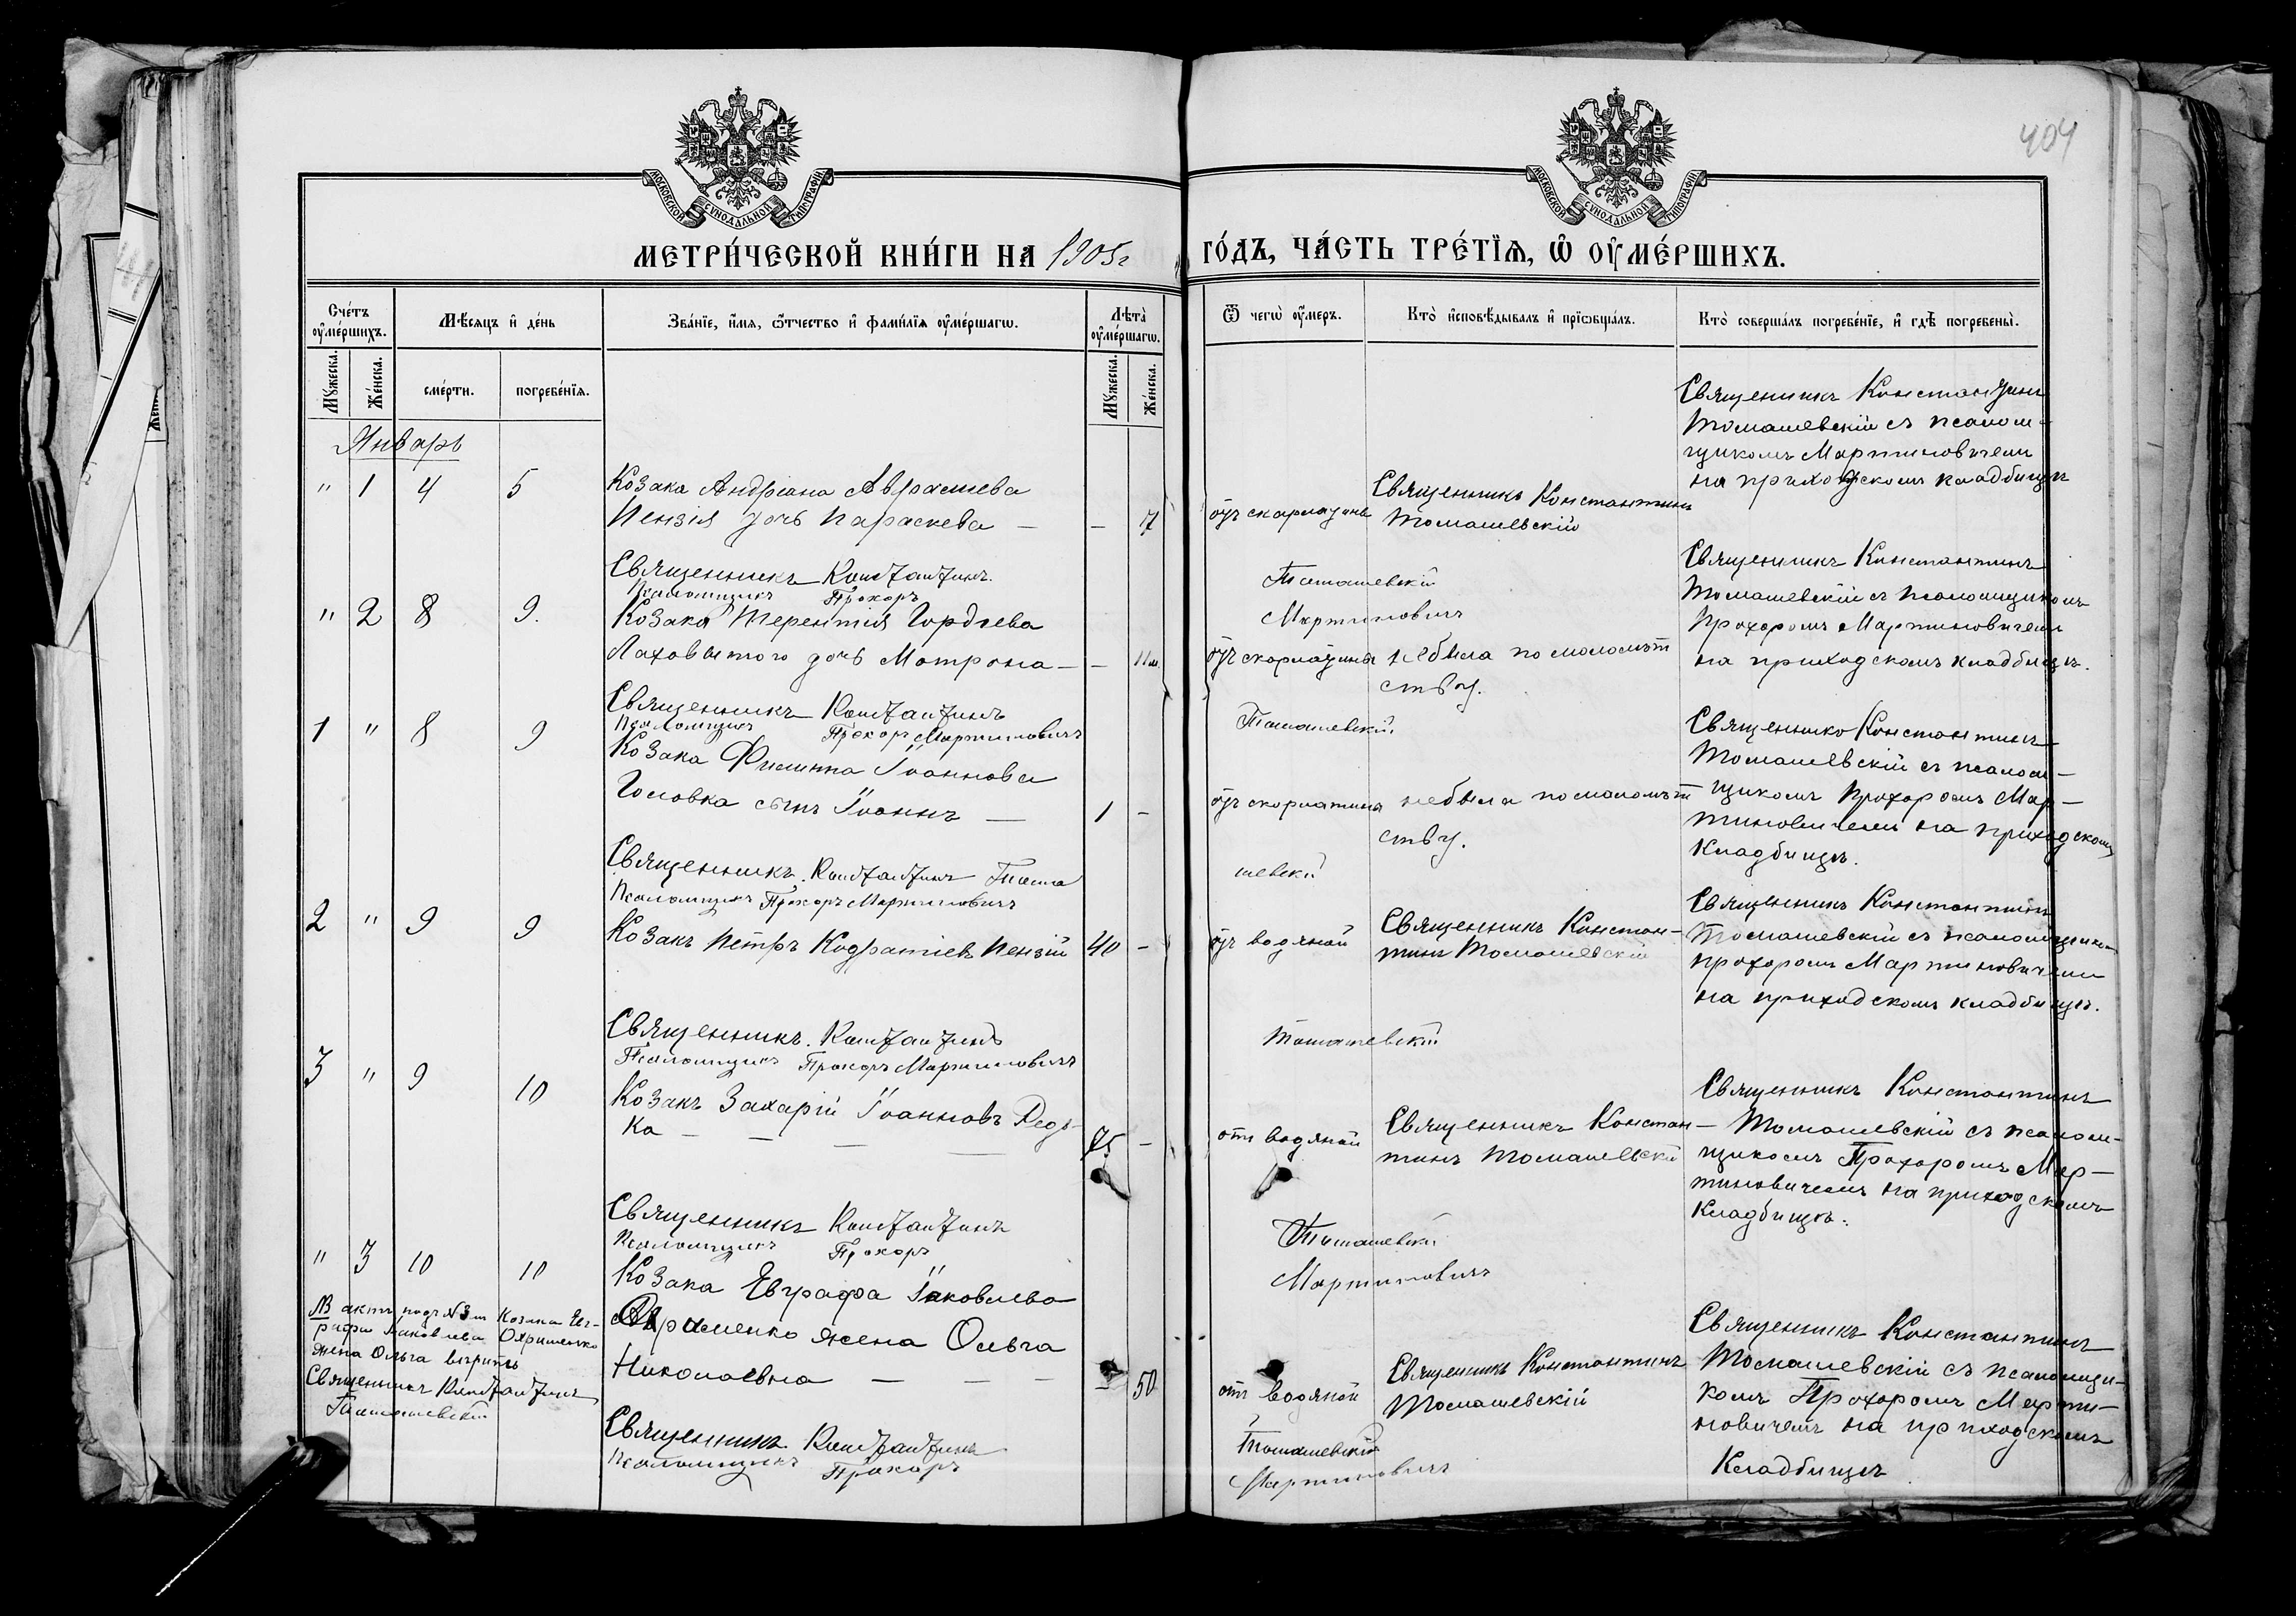 404
МОСКОВСКОЙ СѴНОДАЛЬНОЙ ТИПОГРАФІИ
МОСКОВСКОЙ СѴНОДАЛЬНОЙ ТИПОГРАФІИ
МЕТРИ́ЧЕСКОЙ КНИ́ГИ НА 1905г ГО́ДЪ, ЧА́СТЬ ТРЕ́ТЇѦ, Ѡ ОУ҆МЕ́РШИХЪ.
Сче́тъ оу҆ме́ршихъ.
Мѣ́сяцъ и҆ де́нь
Зва́нїе, и҆́мѧ, ѻ҆́тчество и҆ фами́лїѧ оу҆ме́ршагѡ.
Лѣ̀та оу҆ме́ршагѡ.
Ѿ чегѡ̀ оу҆́меръ.
Кто̀ и҆сповѣ́дывалъ и҆ прїѡбща́лъ.
Кто̀ соверша́лъ погребе́нїе, и҆ гдѣ̀ погребены̀.
Мꙋ́жеска.
Же́нска.
сме́рти.
погребе́нїѧ.
Мꙋ́жеска.
Же́нска.
Январь
" 1 4 5
Козака Андріана Авраамева
Пензія дочь Параскева — — 7
отъ скарлатины
Священникъ Константинъ
Томашевскій
Священникъ Константинъ
Томашевскій съ псалом-
щикомъ Мартиновичемъ
на приходскомъ кладбищѣ
Священникъ Константинъ Томашевскій
Псаломщикъ Прохоръ Мартиновичъ
" 2 8 9.
Козака Терентія Гордѣева
Лаховитого дочь Матрона — — 11 м.
отъ скарлатины
небыла по малолѣт
ству.
Священникъ Константинъ
Томашевскій съ псаломщикомъ
Прохоромъ Мартиновичемъ
на приходскомъ кладбищѣ.
Священникъ Константинъ Томашевскій
Псаломщикъ Прохоръ Мартиновичъ
1 " 8 9
Козака Филиппа Іоаннова
Головка сынъ Іоаннъ — 1 -
отъ скарлатины
небыла по малолѣт
ству.
Священникъ Константинъ
Томашевскій съ псалом-
щикомъ Прохоромъ Мар-
тиновичемъ на приходскомъ
кладбищѣ.
Священникъ Константинъ Томашевскій
Псаломщикъ Прохоръ Мартиновичъ
2 " 9 9
Козакъ Петръ Кодратіевъ Пензій 40 -
отъ водяной
Священникъ Констан-
тинъ Томашевскій
Священникъ Константинъ
Томашевскій съ псаломщикомъ
Прохоромъ Мартиновичемъ
на приходскомъ кладбищѣ.
Священникъ Константинъ Томашевскій
Псаломщикъ Прохоръ Мартиновичъ
3 " 9 10
Козакъ Захарій Іоанновъ Редь-
ка — — — — 75 -
отъ водяной
Священникъ Констан-
тинъ Томашевскій
Священникъ Константинъ
Томашевскій съ псалом-
щикомъ Прохоромъ Мар-
тиновичемъ на приходскомъ
кладбищѣ.
Священникъ Константинъ Томашевскій
Псаломщикъ Прохоръ Мартиновичъ
" 3 10 10
Козака Евграфа Іаковлева
жена Ольга
Николаевна — — — — 50
отъ водяной
Священникъ Константинъ
Томашевскій
Священникъ Константинъ
Томашевскій съ псаломщи-
комъ Прохоромъ Марти-
новичемъ на приходскомъ
кладбищѣ
NB актъ подъ №3 Козака Ев-
графа Іаковлева
жена Ольга вѣрить
Священникъ Константинъ
Томашевскій
Священникъ Константинъ Томашевскій
Псаломщикъ Прохоръ Мартиновичъ